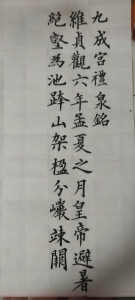 九成宮禮泉銘
維貞觀六年孟夏之月皇帝避暑
絕壑為池跨山架楹分巖竦闕